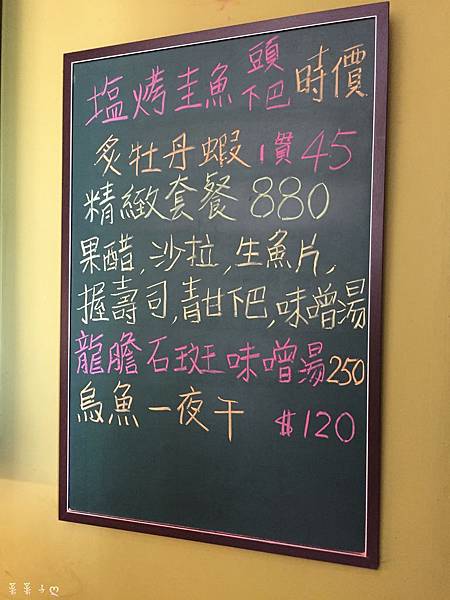 塩烤圭魚頭下巴時價
炙牡丹蝦1貫45
精緻套餐880
果醋,沙拉,生魚片,
握壽司,青甘下巴,味噌湯
龍膽石斑味噌湯250
烏魚一夜干 $120